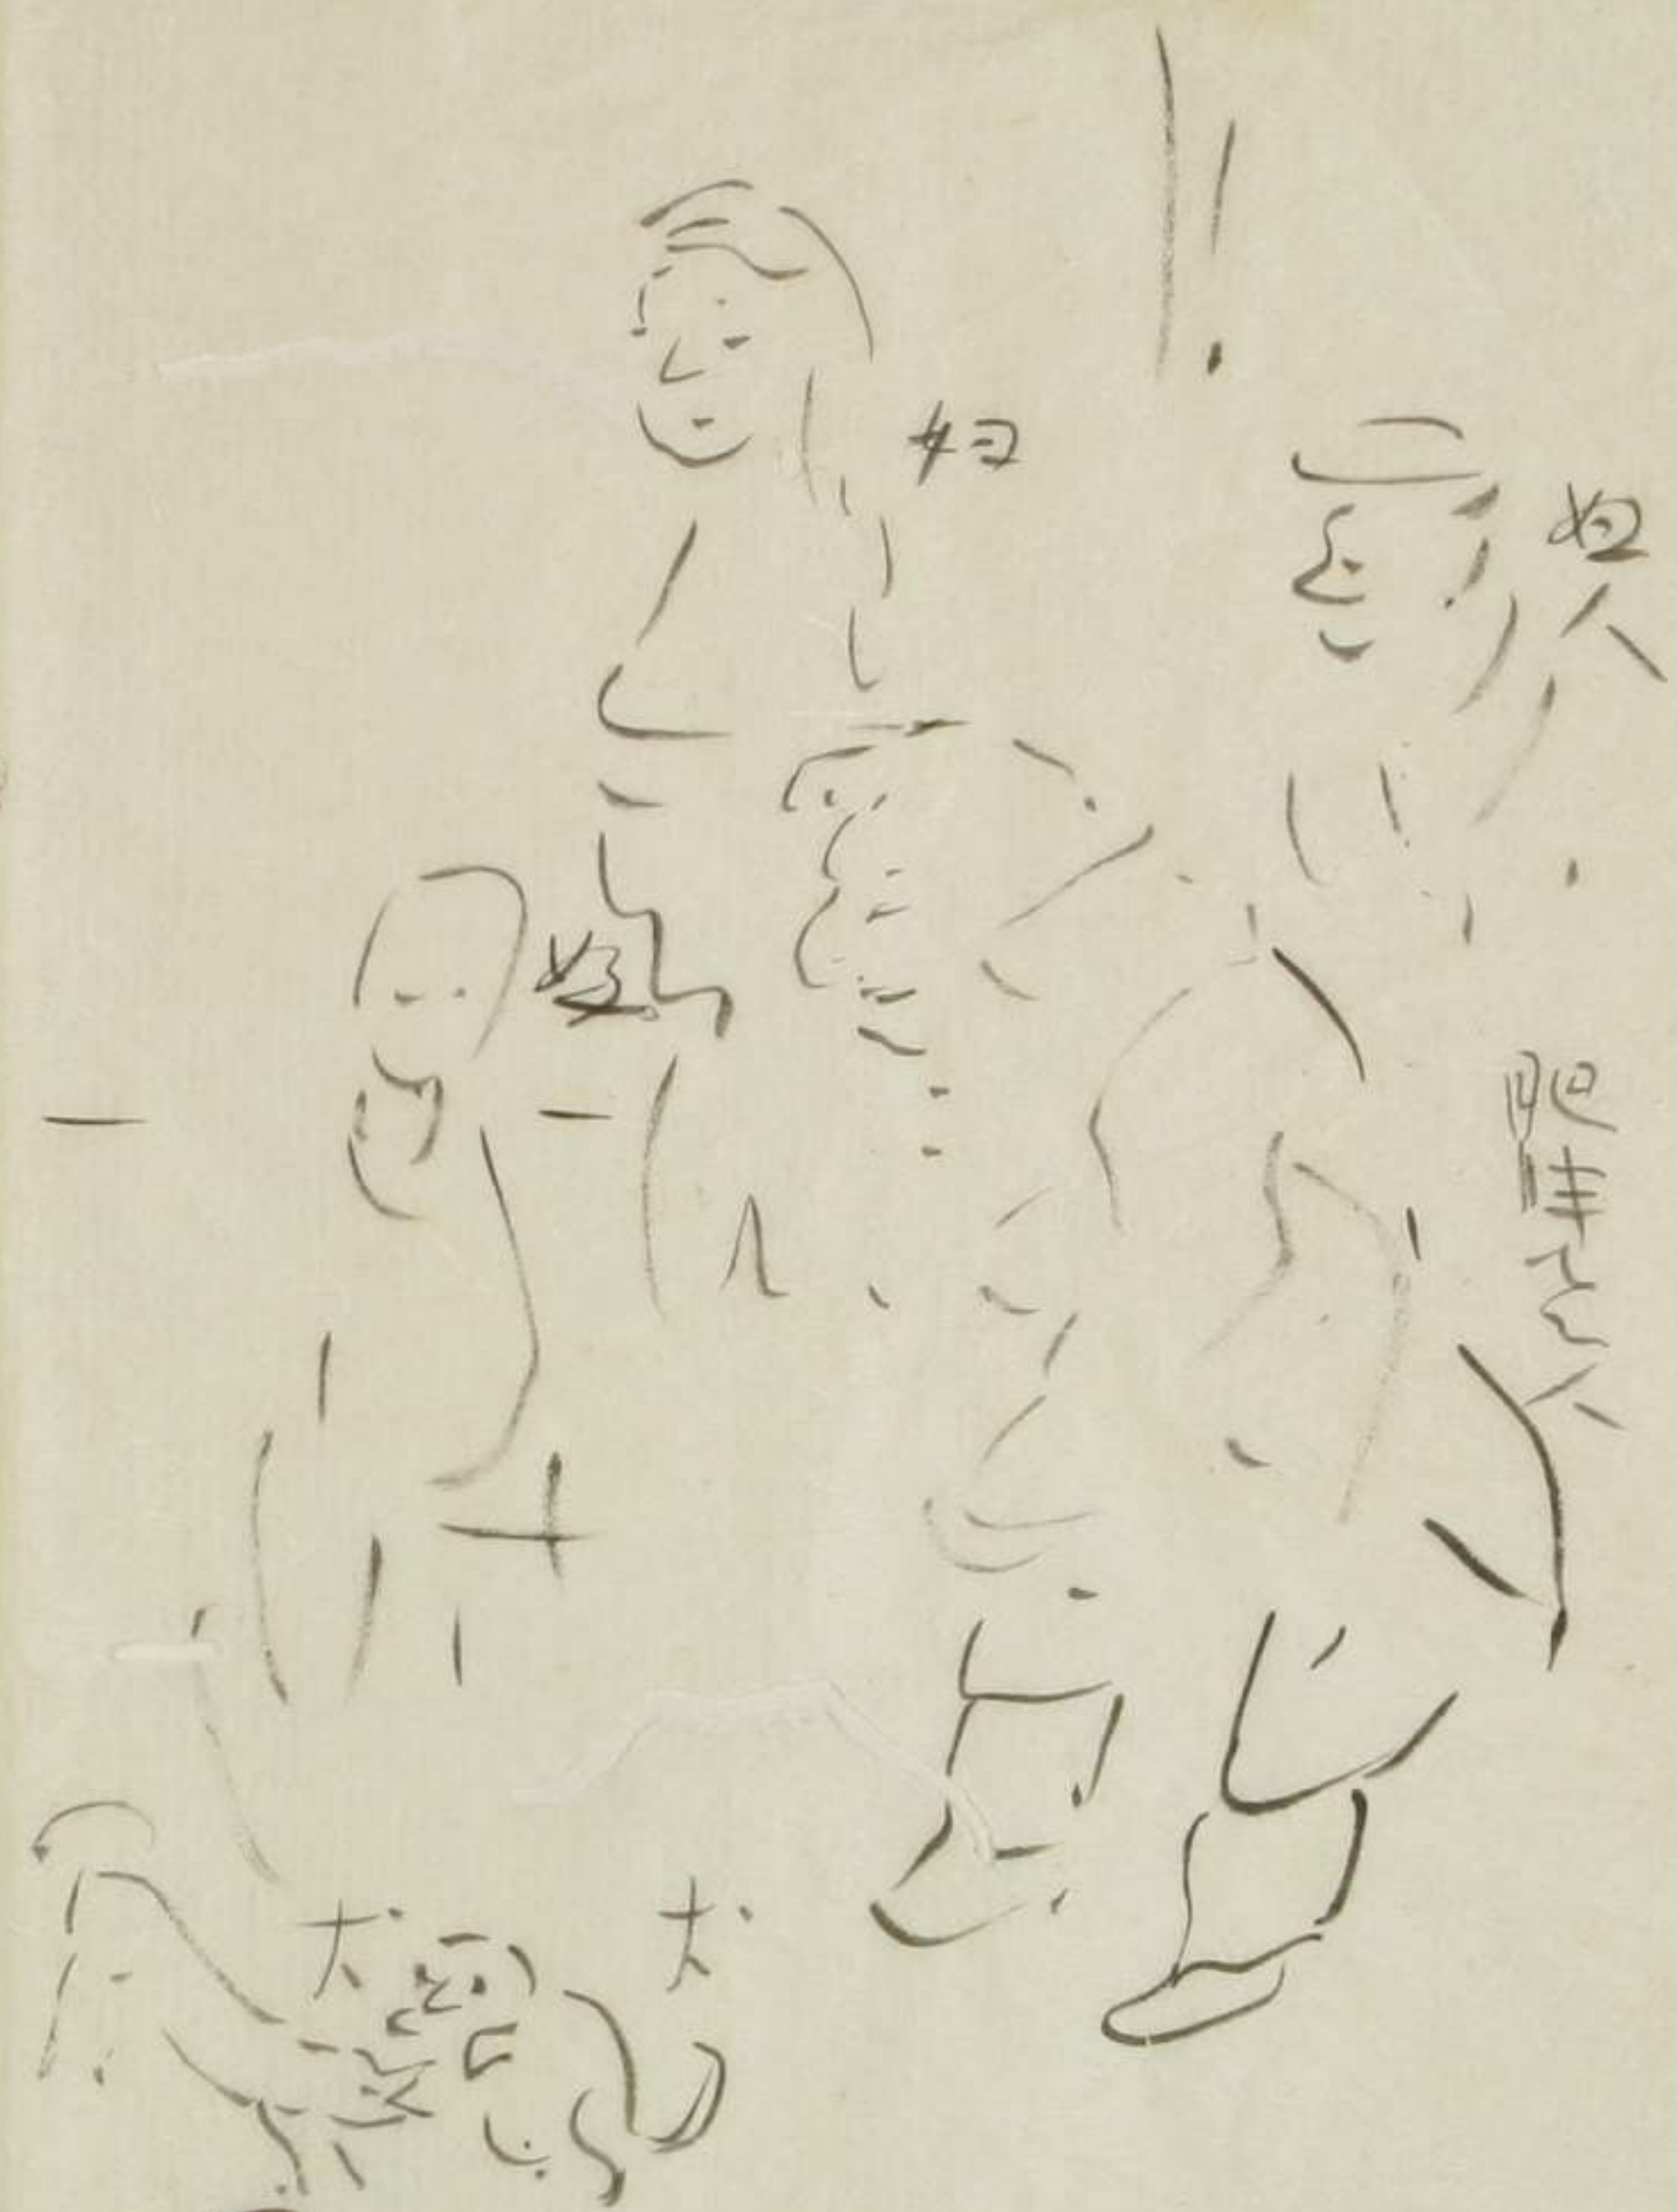 妇
妇人
肥胖老人
犬
犬